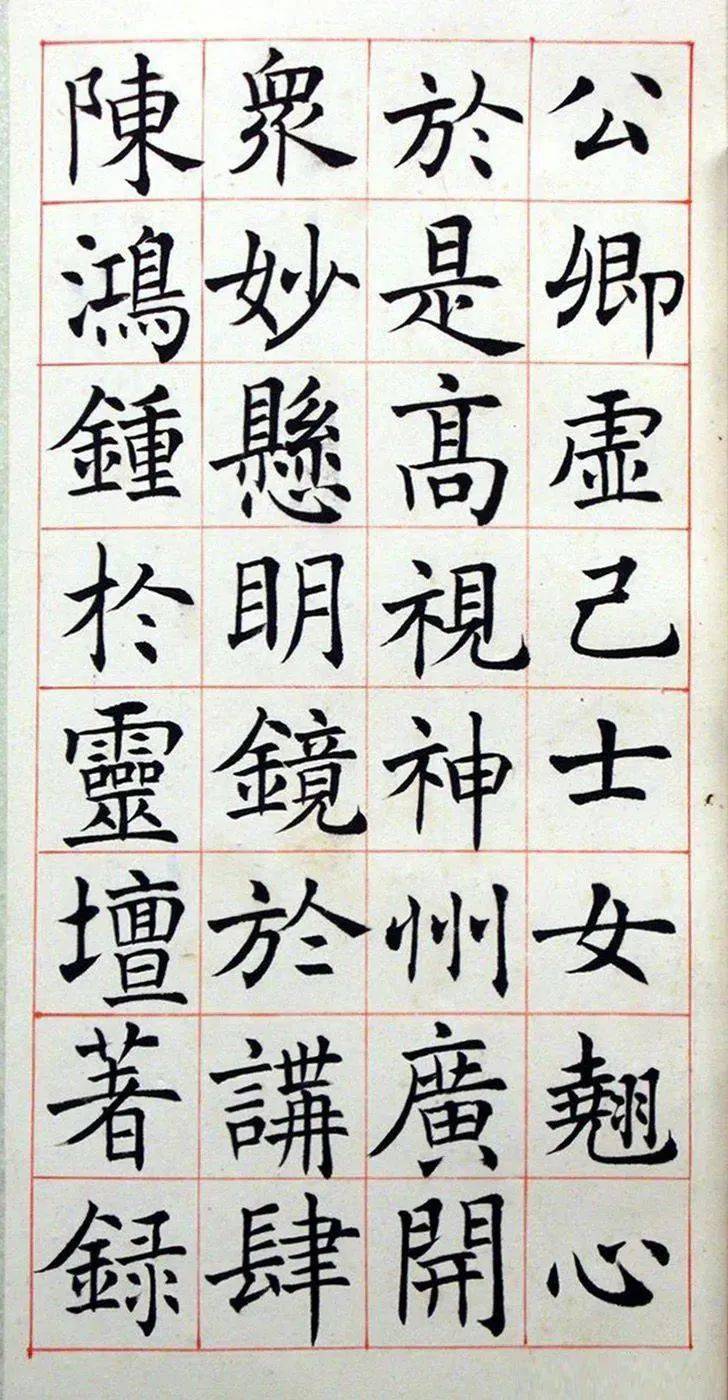 公卿虛己士女翹心
於是髙視神州廣開
衆妙懸明鏡於講肆
陳鴻鍾於靈壇著録